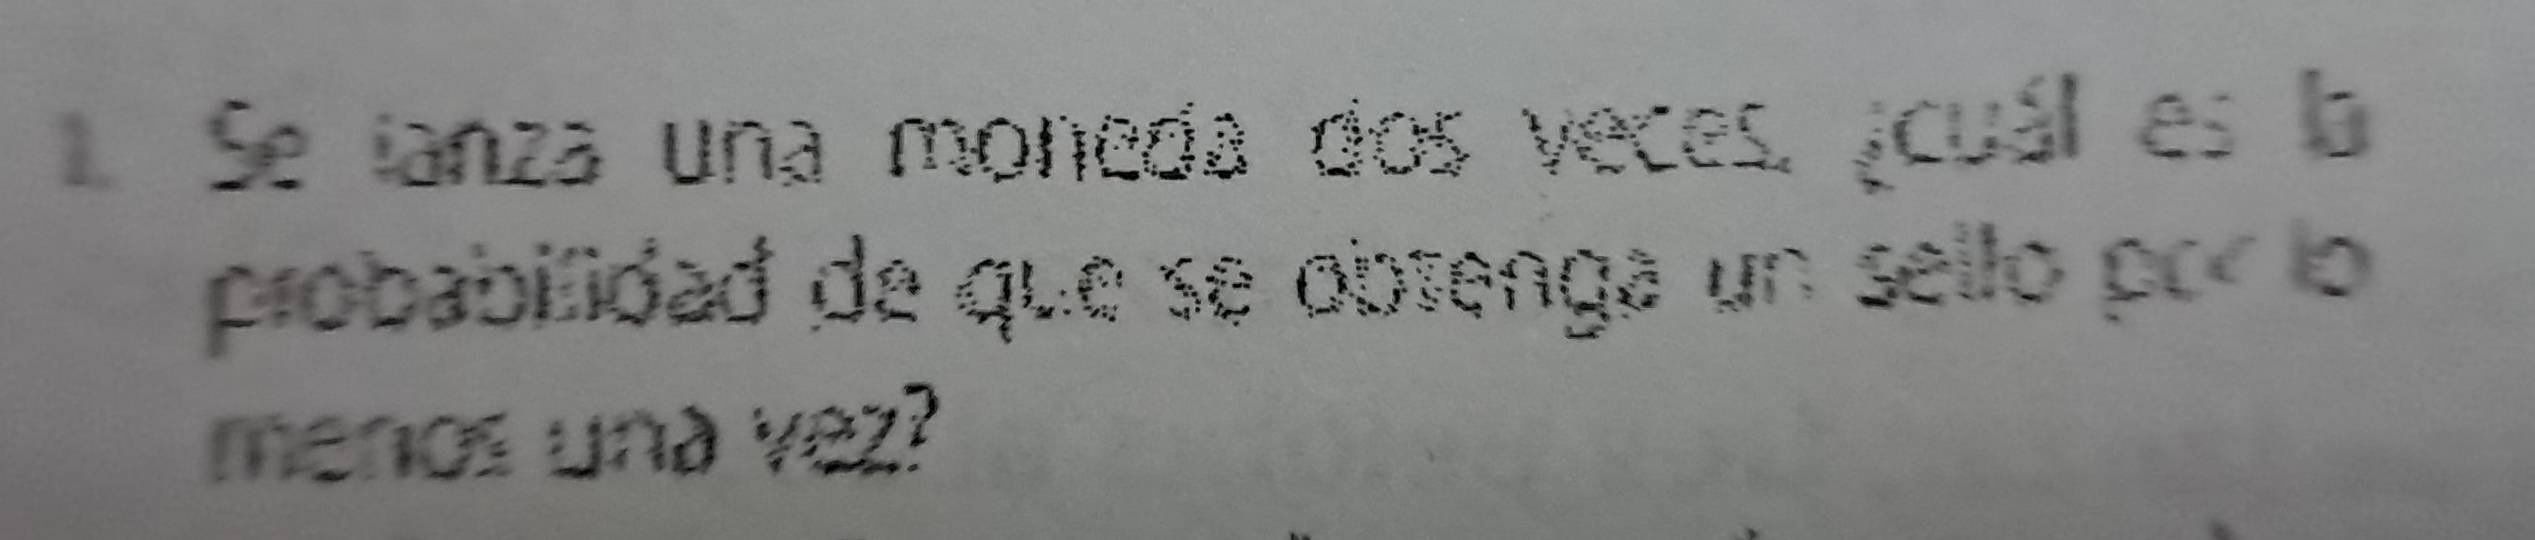 1. Se lanza una moneda dos veces, ¿cuál es la
probabilidad de que se obtenga un sello por lo
menos una vez?